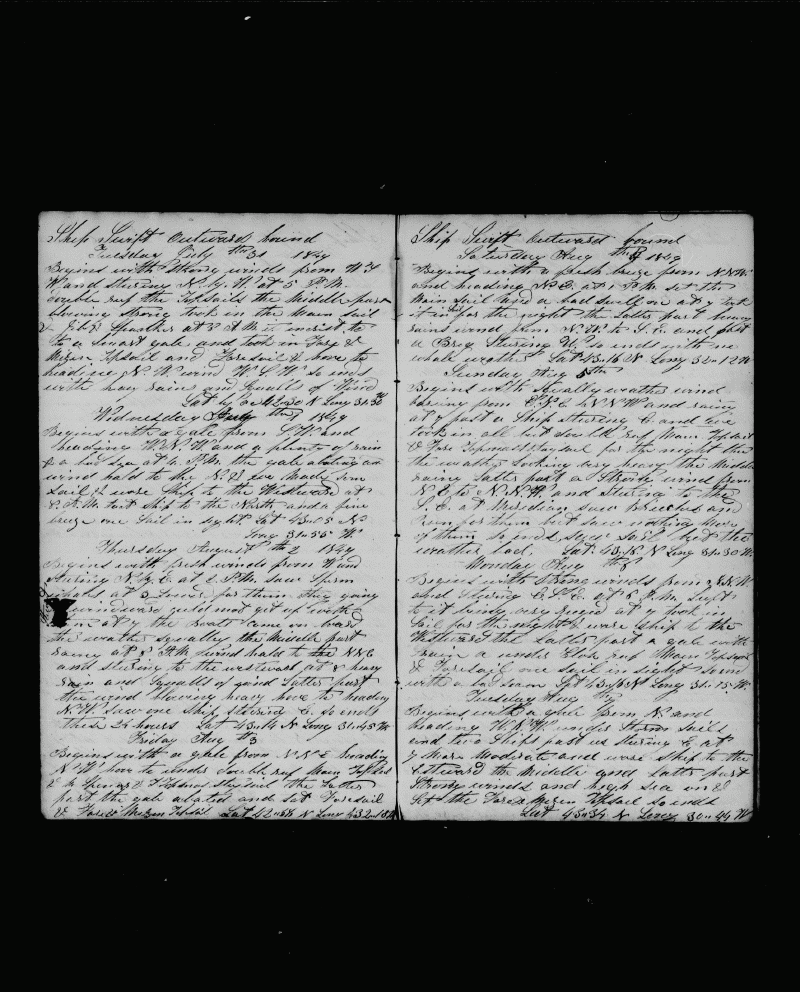 Ship Swift Outward bound
Tuesday July 31 1849
Begins with Strong winds from
W and stering N. by W. at 5 P.M.
double reef the Topsails the Middle part
blowing strong took in the Main Sail
& Jib & Spanker at 8 A M it increst to
to a smart gale and took in Fore &
Mizen Topsail and Foresail & hove to
heading N W wind W S W So ends
with hay rain and Squalls of Wind
Lat by 42-30 N Long 31-30
Wednesday 1849
Begins with a gale from S W and
heading W N. W and a plenty of rain
& a bad Sea at 4 P.M. the gale abating and
wind hald to the N. & we made Sum
Sail & wore Ship to the Westward at
8 A.M. tact Ship to the North and a fine
breeze one Sail in sight Lat 43-05 N
Long 31-55 W
Thursday August 2 1849
Begins with fresh winds from Ward
Stering N. by E. at 2 P.M. Saw Sperm
whals at 3 Lowed for them they going
to windward could not get up with
them at 7 the boats came on board
the weather Squally the Middle part
rainy at 8 A.M. wind hald to the NNE
and stering to the westward at 8 heavy
rain and Squalls of wind Latter part
the wind blowing heavy hove to heading
N. W. Saw one Ship stering E. So ends
these 24 hours Lat 43-14 N Long 31-45 W
Friday Aug 3
Begins with a gale from N N E heading
N W hove to under double reef Main Topsail
& Spencer & F Topmast Stay Sail the Latter
part the gale abated and Set Foresail
& Fore & Mizen Topsail Lat 42-58 N Long
Ship Swift Outward bound
Saturday Aug 4 1849
Begins with a fresh breeze from N.N.W
and heading N.E. at 1 P.M. set the
Main Sail and a bad swell on at 7 took
it in for the night the Latter part heavy
rains wind from N.W. to S.E. and past
a Brig Stering W. So ends with no
whale weather Lat 43-16 N Long 32-12 W
Sunday Aug 5th
Begins with Squally weather wind
baring from E.N.E to N N W and rainy
at 7 past a Ship stering E and we
took in all but double reef Main Topsail
& Fore Topmast Staysail for the night the
the weather Looking very heavy the Middle
rainy Latter part a Strong wind from
N E to N.N.W. and stering to the
S.E. at Meridian saw Breches and
run for them but saw nothing More
of them So ends saw Sail but the
weather bad. Lat 43-18 N Long 31-30 W
Monday Aug 6
Begins with Strong winds from N N W
and Stering E.S.E. at 6 P.M. Luft
to it being very ruged at 7 took in
Sail for the night & wore Ship to the
Westward the Latter part a gale with
rain & under Close reef Main Topsail
& Foresail one Sail in sight So ends
with a bad Sea on Lat 43-16 N Long 31-15 W.
Tuesday Aug 7
Begins with a gale from N. and
heading W.N.W. under Storm Sails
and two Ships past us stering E at
7 More Moderate and wore Ship to the
Eastward the Middle and Latter part
Strong winds and high Sea on &
Set the Fore & Mizen Topsail So ends
Lat 43-34 N Long 30-44 W